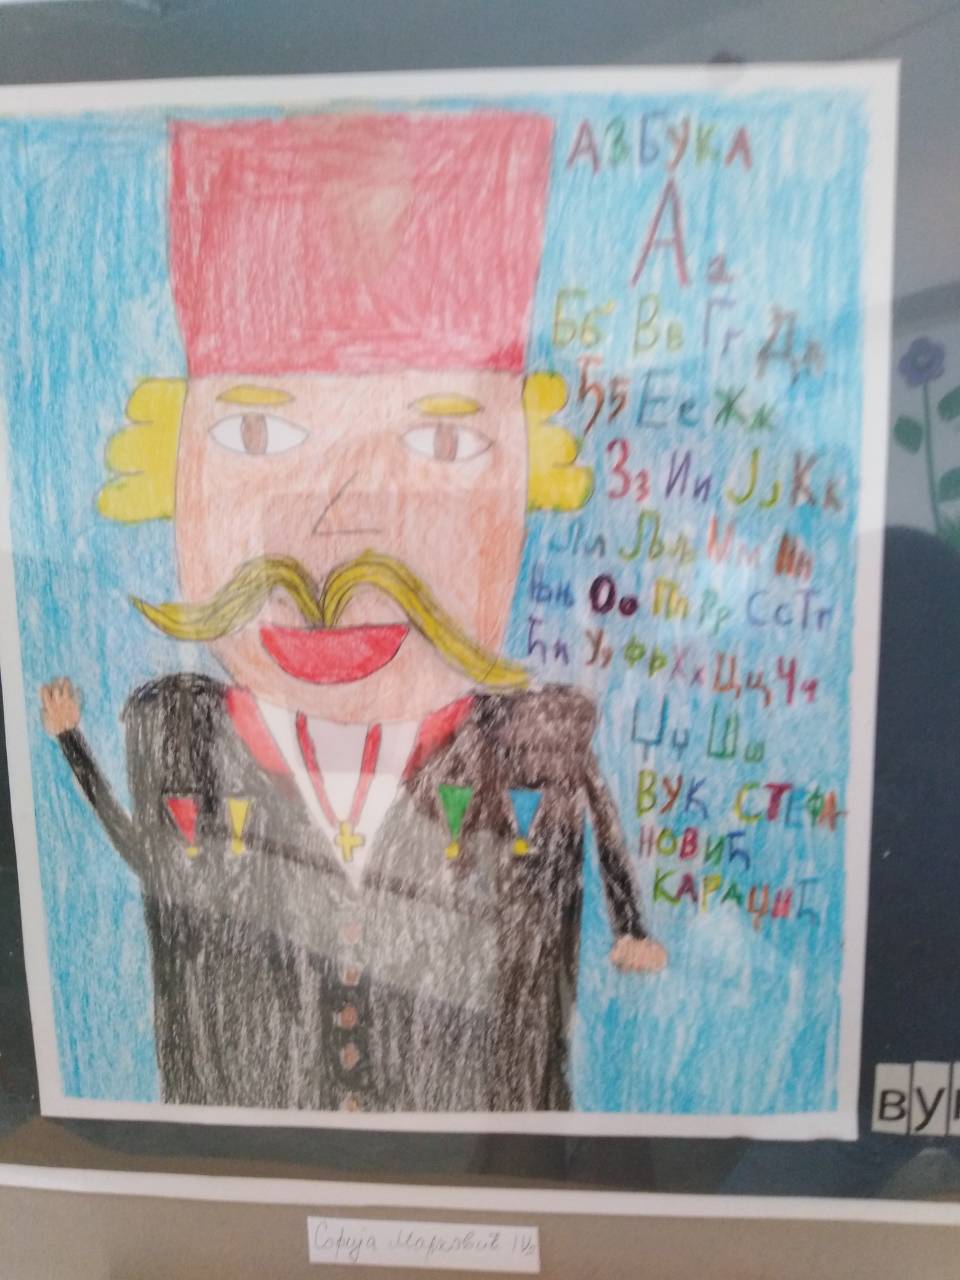 АЗБУКА
А а
Бб Вв Гг Дд
Ђђ Ее Жж
Зз Ии Јј Кк
Лл Љљ Мм Нн
Њњ Оо Пп Рр Сс Тт
Ћћ Уу Фф Хх Цц Чч
Џџ Шш
ВУК СТЕФА
НОВИЋ
КАРАЏИЋ
ву
Софија Марковић IV₂